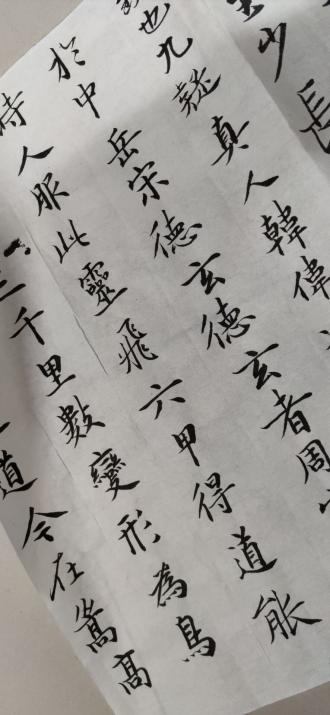 少長
也九疑真人韓偉
於中岳宋德玄德玄者周
時人服此靈飛六甲得道能
三千里數變形為鳥
道今在嵩高